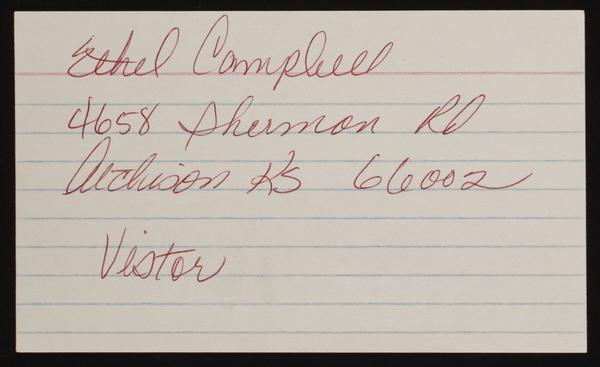 Ethel Campbell
4658 Shermon Rd
Atchison KS 66002
Vistor